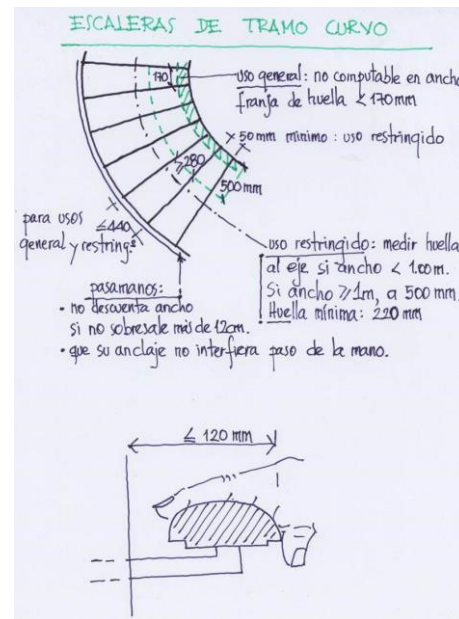 ESCALERAS DE TRAMO CURVO
170
uso general: no computable en ancho
franja de huella < 170 mm
50 mm mínimo: uso restringido
≥280
500 mm
para usos
general y restring.º
≤440
uso restringido: medir huella
al eje si ancho < 1.00 m.
Si ancho ≥ 1m, a 500 mm.
Huella mínima: 220 mm
pasamanos:
• no descuenta ancho
si no sobresale más de 12cm.
• que su anclaje no interfiera paso de la mano.
≤ 120 mm